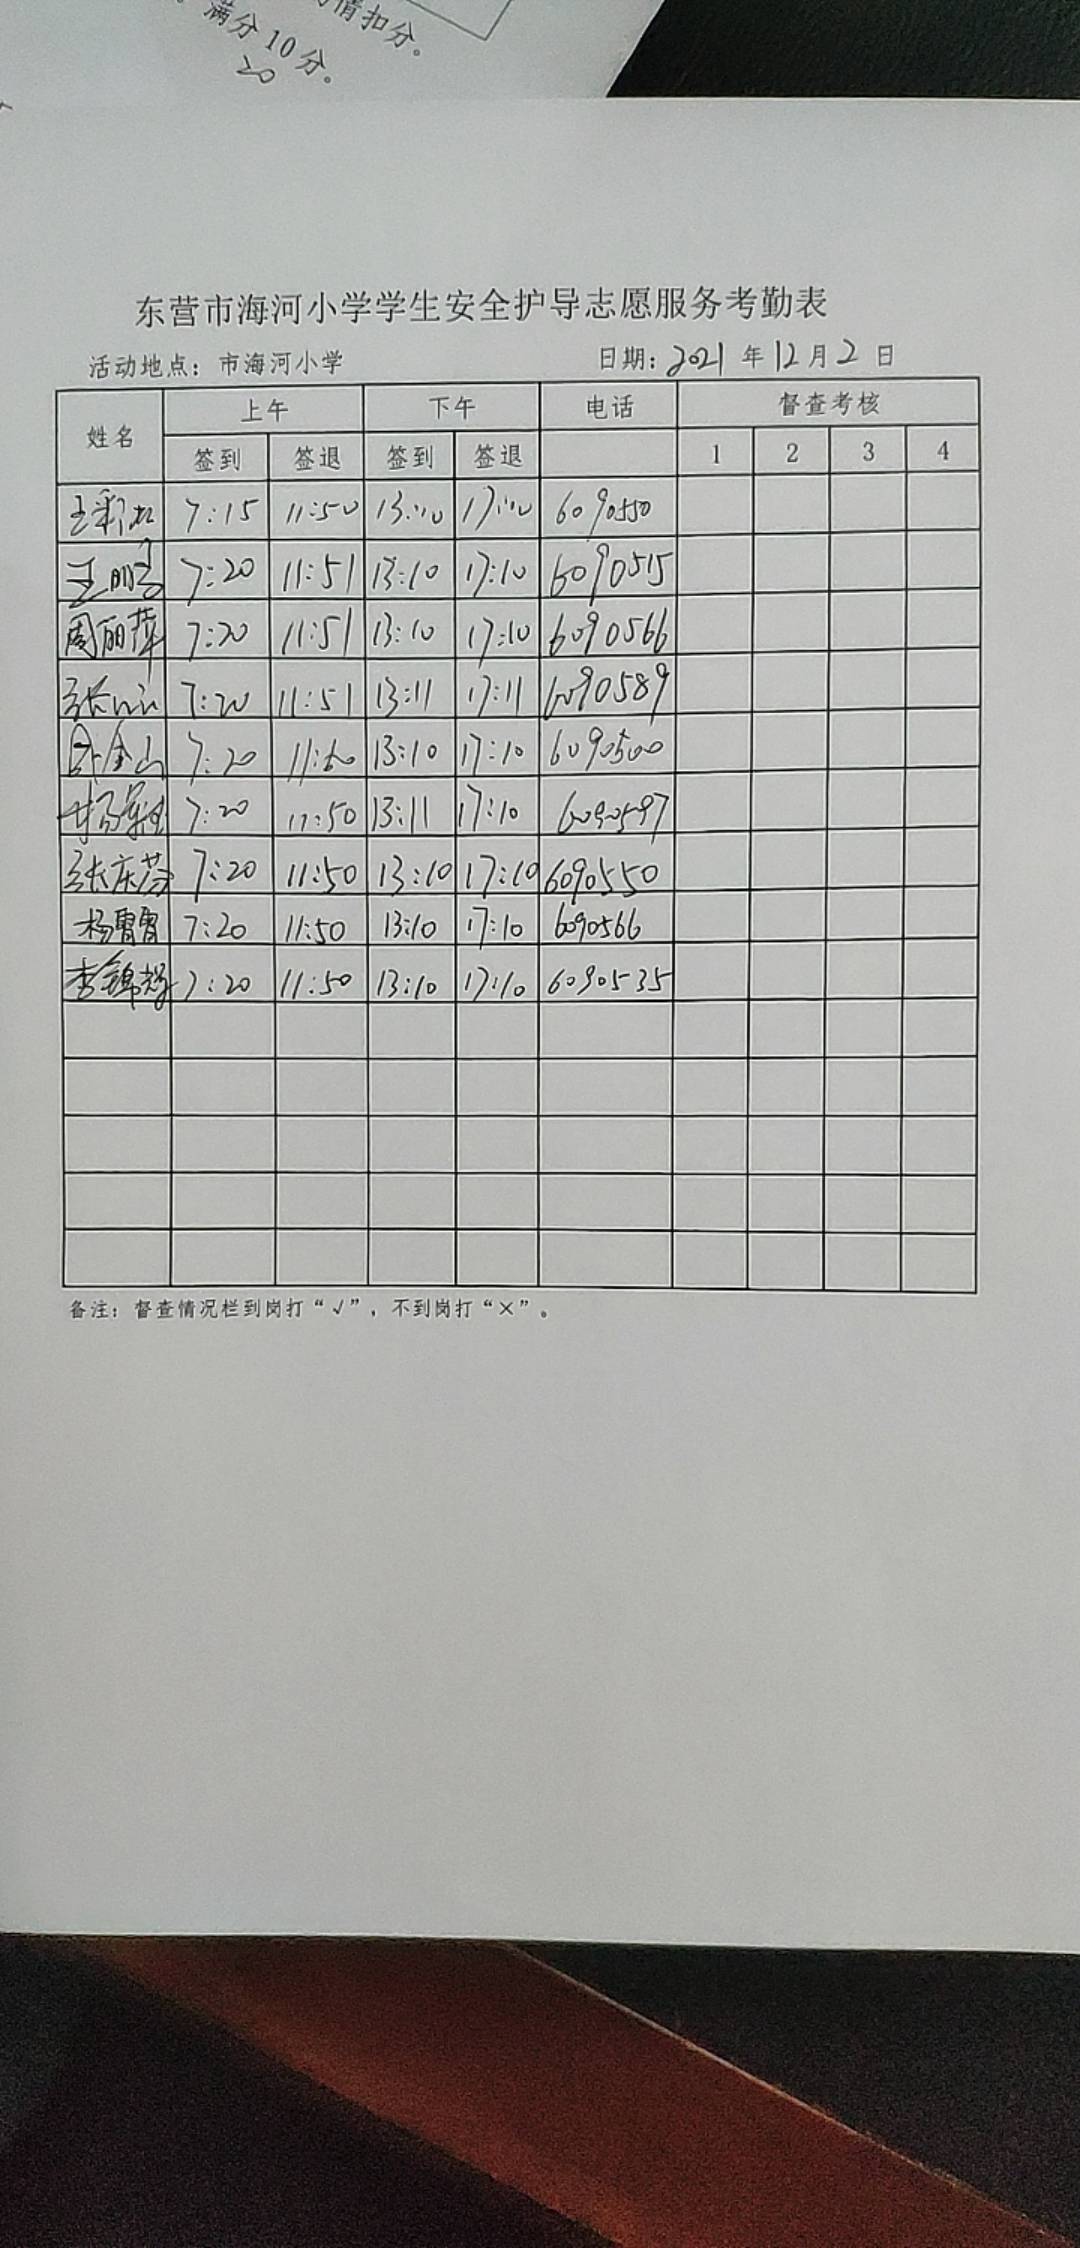 情扣分。
满分10分。
20
东营市海河小学学生安全护导志愿服务考勤表
活动地点：市海河小学 日期：2021年12月2日
姓名 上午 下午 电话 督查考核
签到 签退 签到 签退 1 2 3 4
7:15 11:50 6090550
7:20 11:51 13:10 17:10 6090515
周丽萍 7:20 11:51 13:10 17:10 6090566
7:20 11:51 13:11 17:11 6090589
7:20 13:10 17:10 6090500
7:20 11:50 13:11 17:10 6090597
张庆芬 7:20 11:50 13:10 17:10 6090550
杨霄霄 7:20 11:50 13:10 17:10 6090566
李锦绣 7:20 11:50 13:10 17:10 6090535
备注：督查情况栏到岗打“√”，不到岗打“×”。